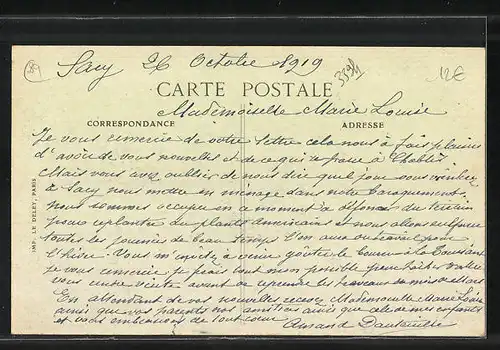 Sacy 26 Octobre 1919
12€
CARTE POSTALE
Mademoiselle Marie Louise
CORRESPONDANCE
ADRESSE
Je vous remercie de votre lettre cela nous a fais plaisir
d'avoir de vous nouvelles et de ce qui ce passe a Chablis
Mais vous avez oublier de nous dire quel jour vous
a Sacy nous mettre en ménage dans notre baraquement
nous sommes occupe en ce moment a défoncer du terrain
pour replanter du plants américains et nous allons
toutes les journées de beau temps l'on aura du travail pour
l'hiver. Vous m' a venir goûter le bourru a la Toussaint
je vous remercie je ferais tout mon possible pour
vous une visite avant de reprendre les travaux mois de Mars
En attendant de vos nouvelles recevez Mademoiselle Marie Louise
ainsi que vos parents nos amitiés ainsi que celle de mes enfants
et vous embrassons de tout coeur
Armand
IMP. LE DELEY, PARIS